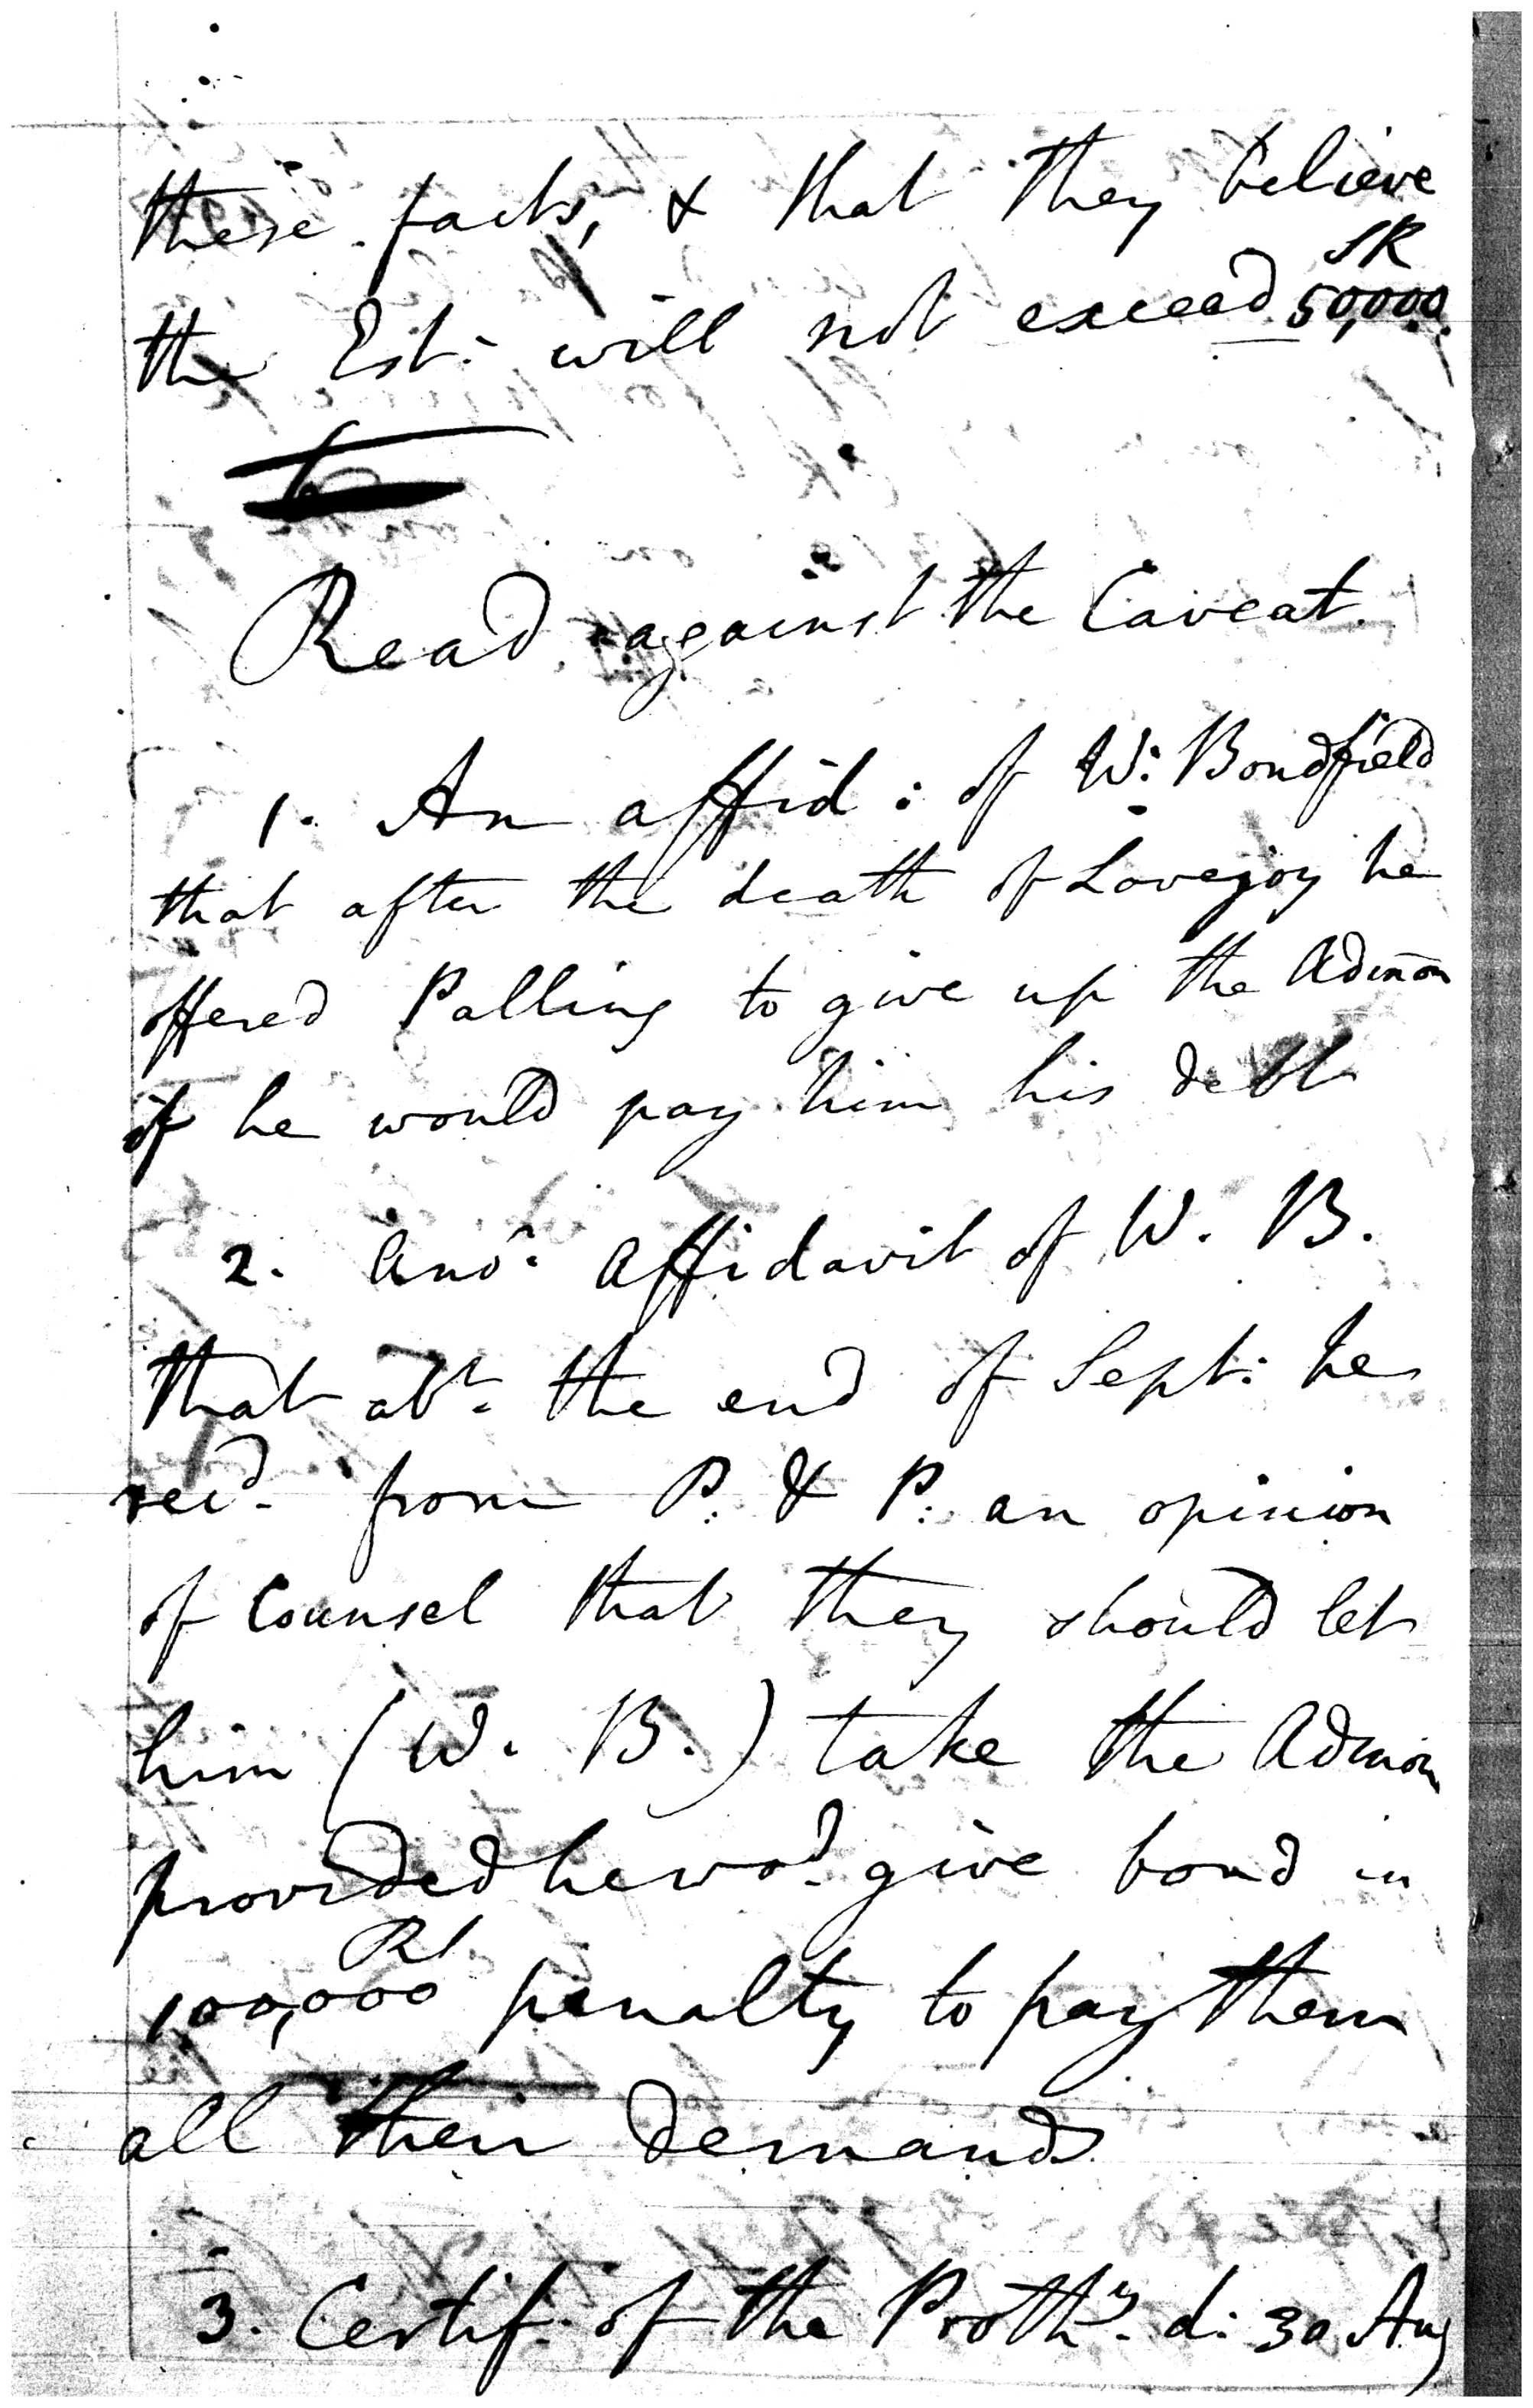 these facts, & that they believe
SR
the Est. will not exceed 50,000.
Read against the Caveat.
1. An affid: of W: Bondfield
that after the death of Lovejoy he
offered Palling to give up the Admōn
if he would pay him his debt
2. Ano.r Affidavit of W. B.
that ab.t the end of Sept: he
rec.d from P. & P. an opinion
of Counsel that they should let
him (W. B.) take the Admōn
provided he wo.d give bond in
100,000 penalty to pay them
all their demands
3. Certif. of the Proth.y d: 30 Aug